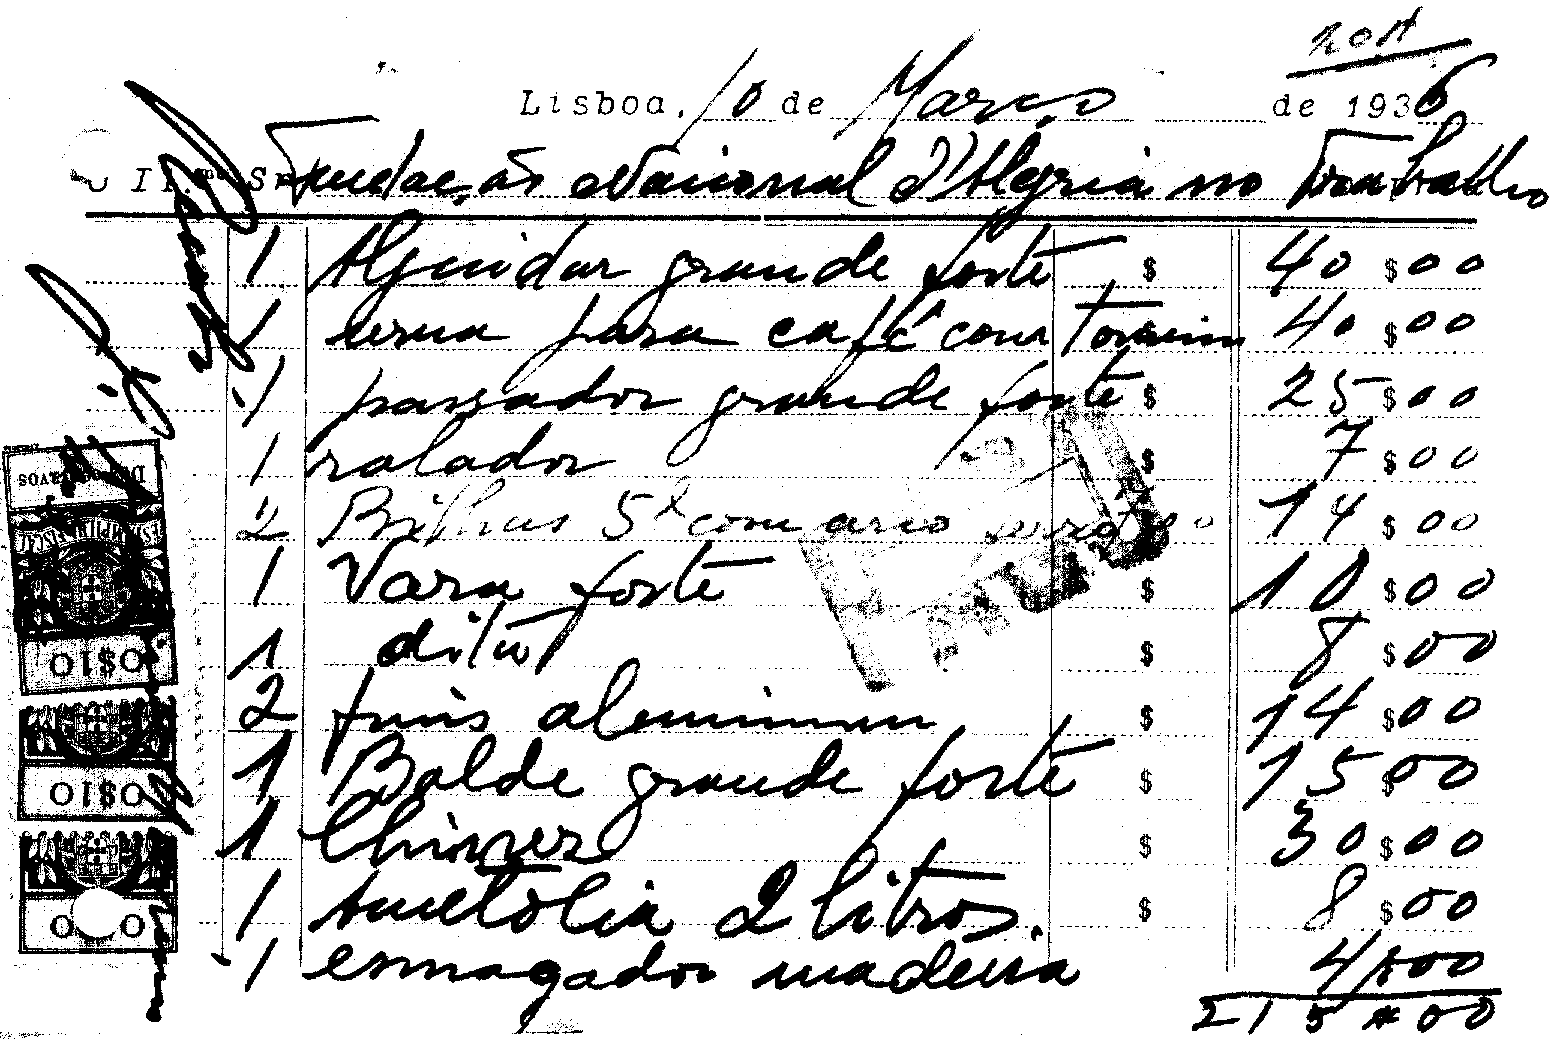 20A
Lisboa, 10 de Março de 1936
Il.mo Sr. Fundação Nacional d'Alegria no Trabalho
1 Alguidar grande forte $ 40 $ 00
1 urna para café com torneira 40 $ 00
1 passador grande forte $ 25 $ 00
1 ralador $ 7 $ 00
2 Bilhas 5l com arco 14 $ 00
1 Vara forte $ 10 $ 00
1 dita $ 8 $ 00
2 funis aluminum $ 14 $ 00
1 Balde grande forte $ 15 $ 00
1 Chinez $ 30 $ 00
1 Amotolia 2 litros. $ 8 $ 00
1 esmagador madeira 4 $ 00
215 $ 00
0$10
0$10